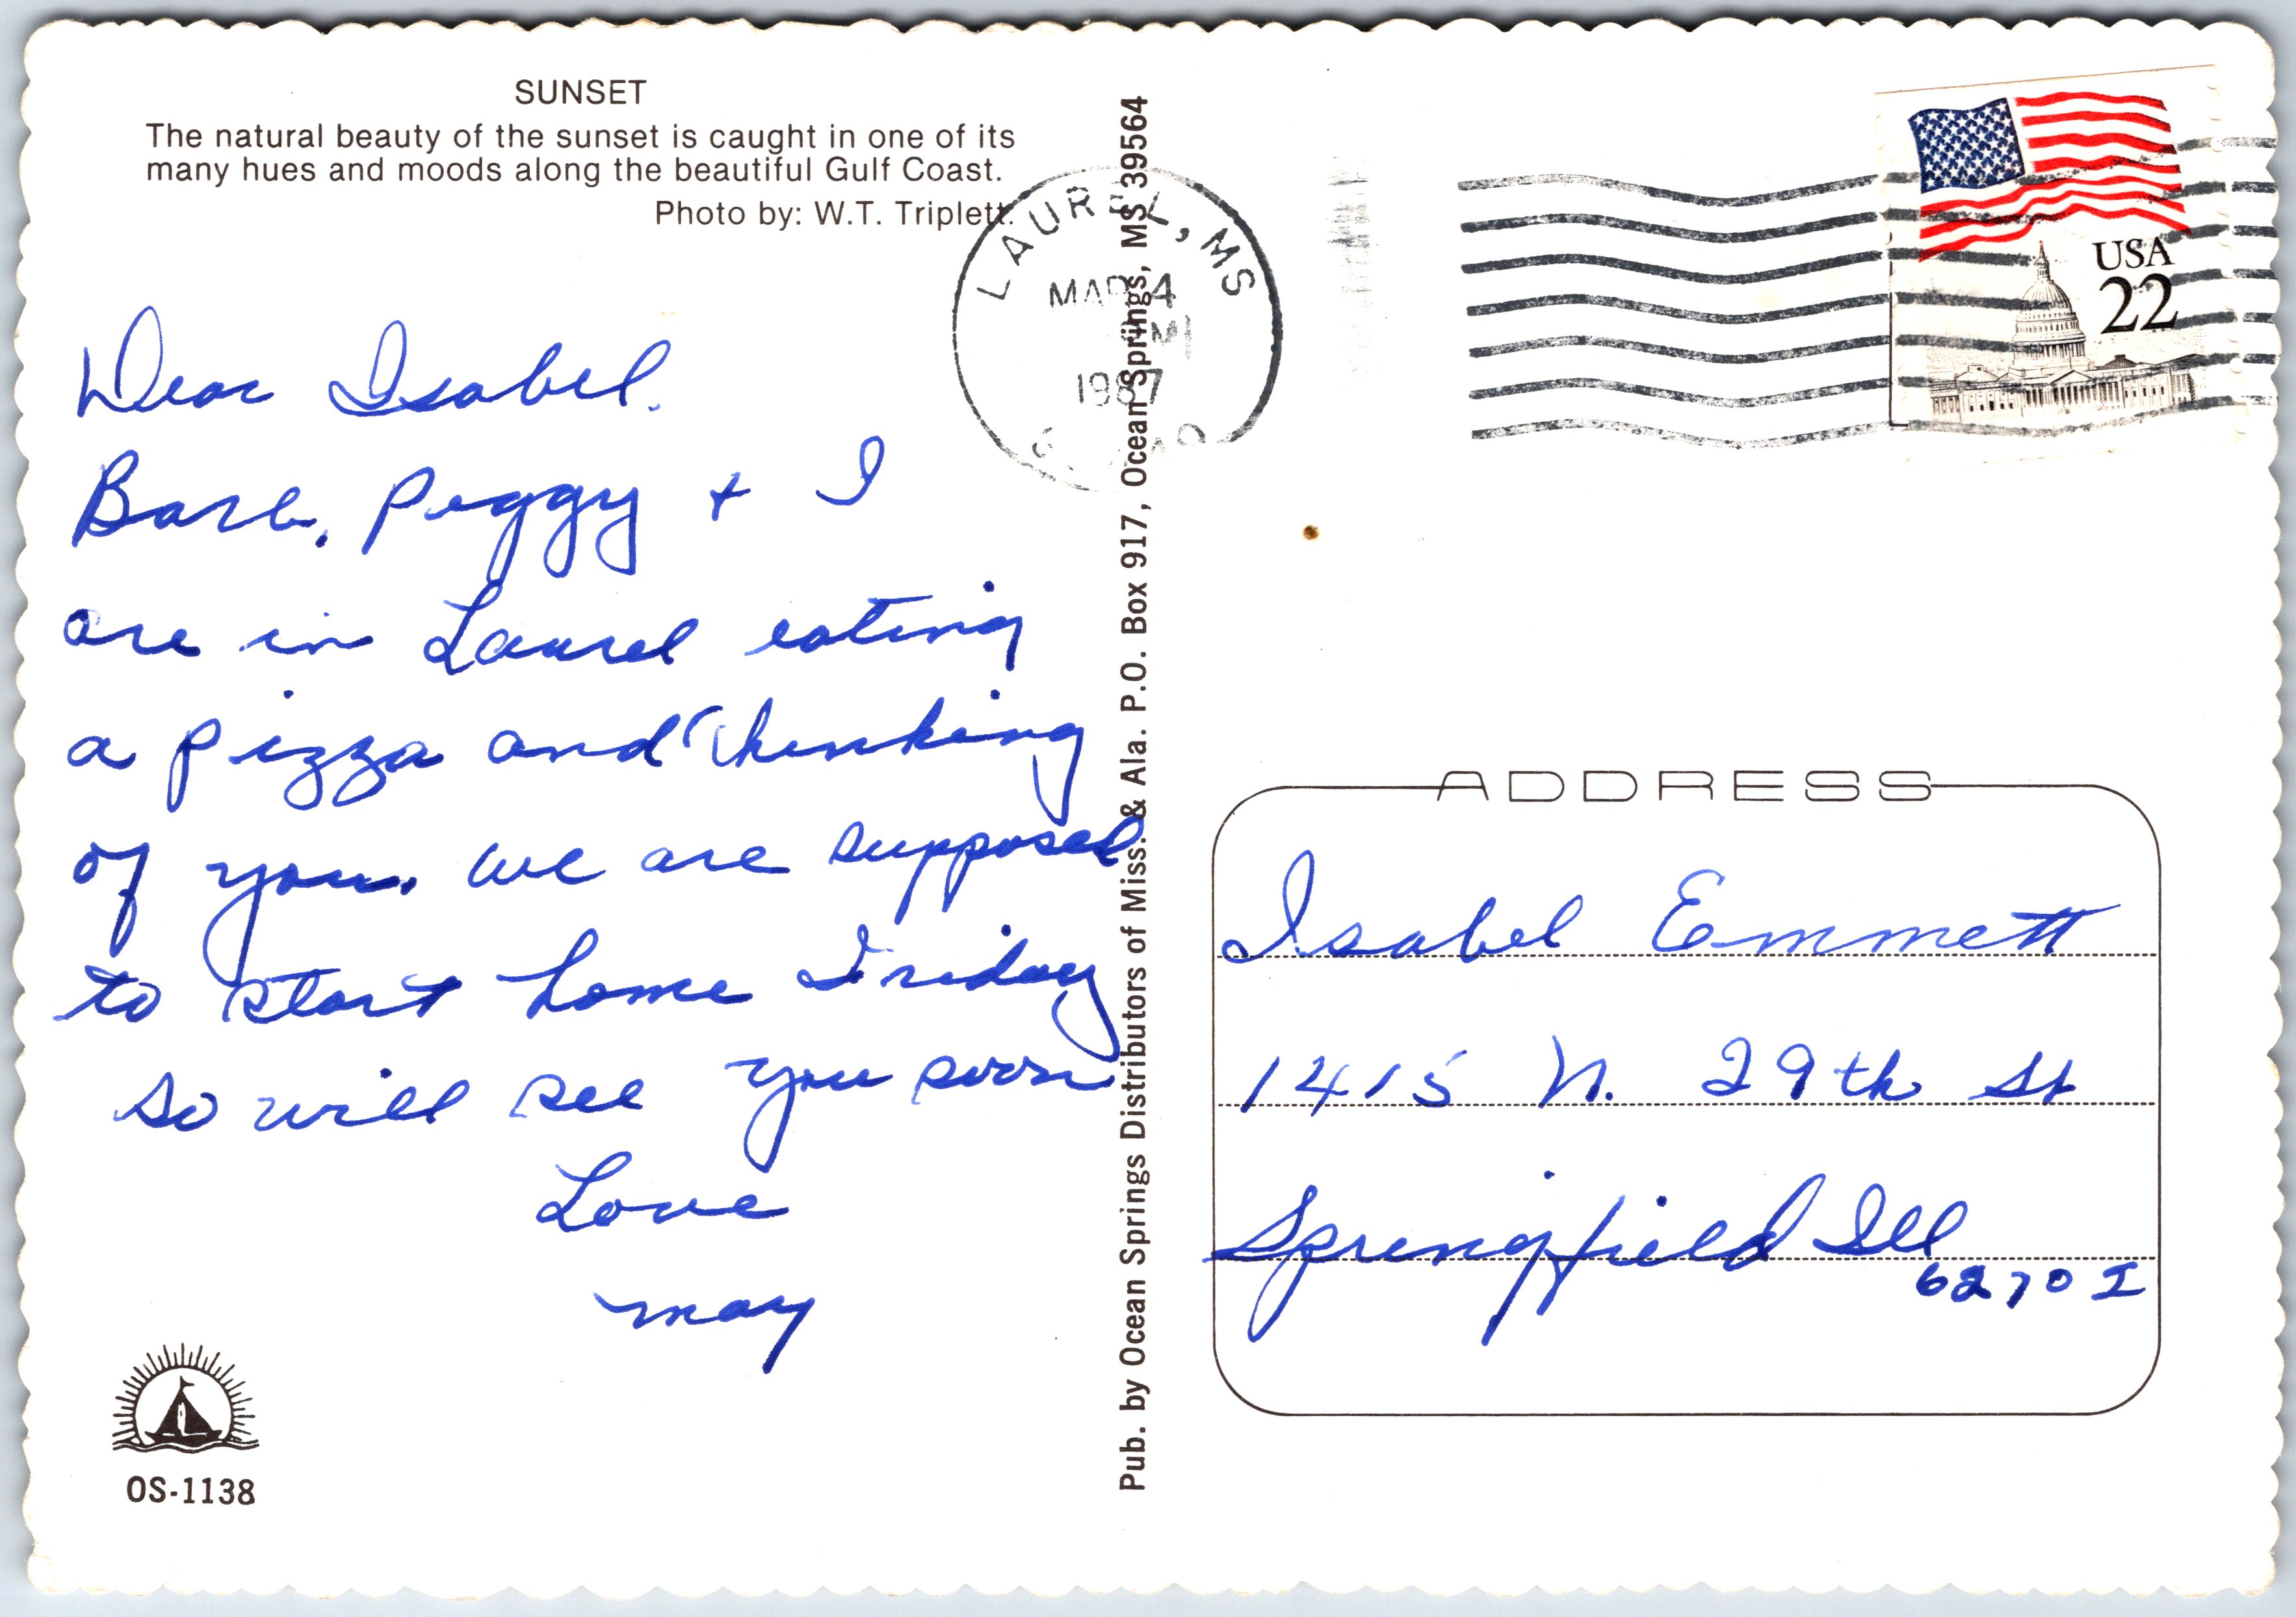 SUNSET
The natural beauty of the sunset is caught in one of its
many hues and moods along the beautiful Gulf Coast.
Photo by: W.T. Triplett.
Dear Isabel.
Barb, Peggy + I
are in Laurel eating
a pizza and thinking
of you. We are supposed
to start home Friday
so will see you soon
Love
May
OS-1138
Pub. by Ocean Springs Distributors of Miss. & Ala. P.O. Box 917, Ocean Springs, MS 39564
LAUREL, MS
MAR 4
PM
1987
USA
22
ADDRESS
Isabel Emmett
1415 N. 29th St
Springfield Ill
62702